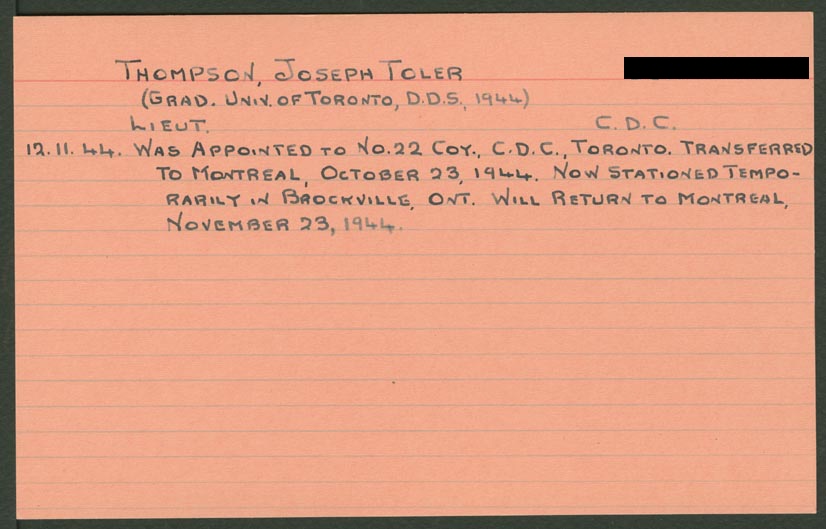 THOMPSON, JOSEPH TOLER
(GRAD. UNIV. OF TORONTO, D.D.S., 1944)
LIEUT. C. D. C.
12.11.44. WAS APPOINTED TO NO.22 COY., C.D.C., TORONTO. TRANSFERRED
TO MONTREAL, OCTOBER 23, 1944. NOW STATIONED TEMPO-
RARILY IN BROCKVILLE, ONT. WILL RETURN TO MONTREAL,
NOVEMBER 23, 1944.